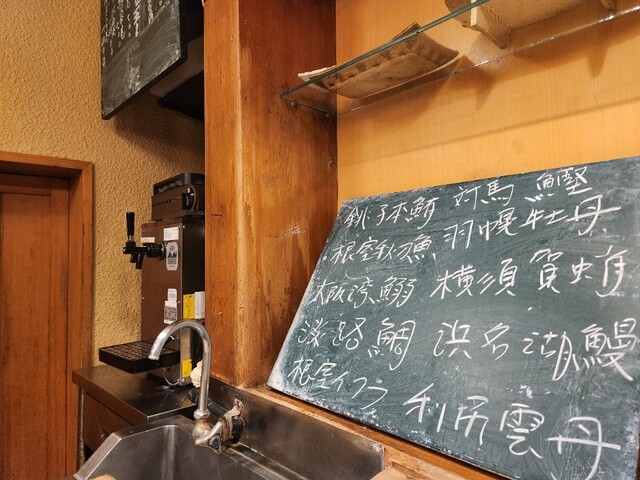 銚子本鮪 対馬鰹
根室秋刀魚 羽幌牡丹
大阪湾鰯 横須賀蛸
淡路鯛 浜名湖鰻
根室イクラ 利尻雲丹